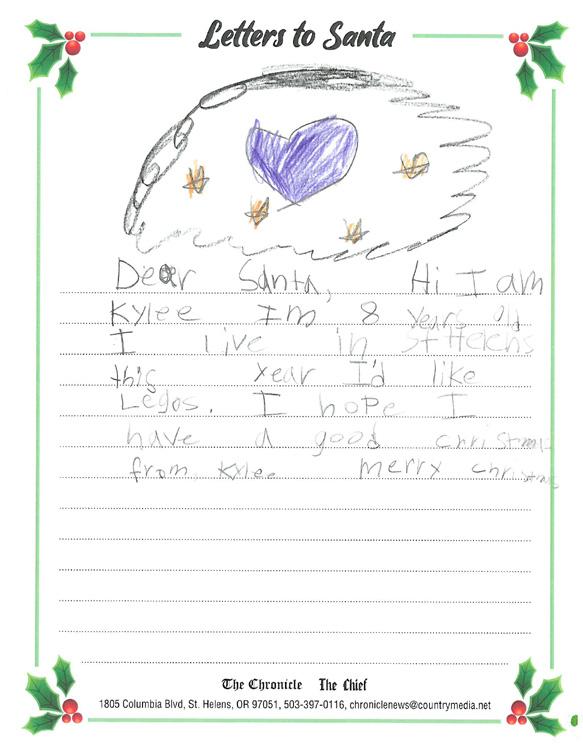 Letters to Santa
Dear Santa, Hi I am
Kylee Im 8 years old
I live in St Helens
this year I'd like
Legos. I hope I
have a good christmas
from Kylee merry christmas
The Chronicle The Chief
1805 Columbia Blvd, St. Helens, OR 97051, 503-397-0116, chroniclenews@countrymedia.net